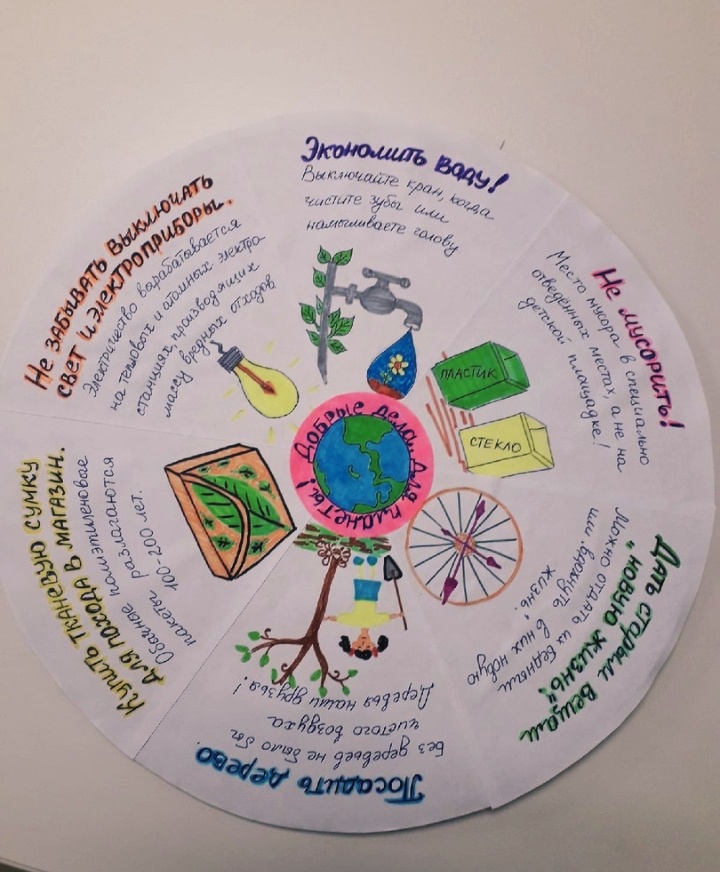 Экономить воду!
Выключайте кран, когда
чистите зубы или
намыливаете голову
Не мусорить!
Место мусора в специально
отведённых местах, а не на
детской площадке!
ПЛАСТИК
СТЕКЛО
Дать старым вещам
"новую жизнь"
Можно отдать их бедным
или "вдохнуть в них новую
жизнь".
Посадить дерево
Без деревьев не было бы
чистого воздуха.
Деревья наши друзья!
Купить тканевую сумку
для похода в магазин.
Обычные полиэтиленовые
пакеты разлагаются
100-200 лет.
Не забывать выключать
свет и электроприборы.
Электричество вырабатывается
на тепловых и атомных электро-
станциях производящих
массу вредных отходов
Добрые дела для планеты!